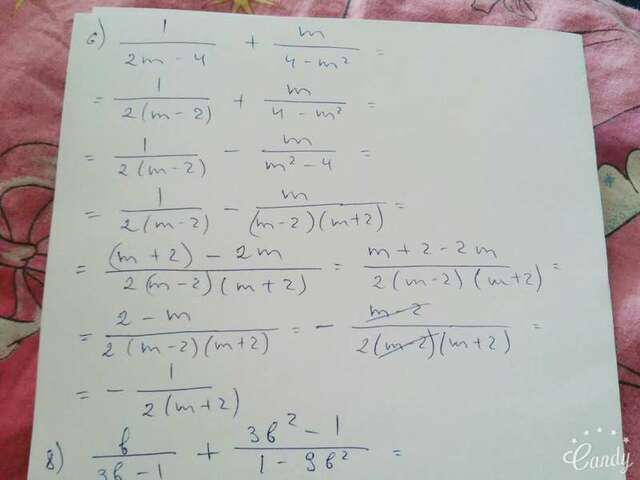 6) 1/(2m - 4) + m/(4 - m²) =
= 1/(2(m - 2)) + m/(4 - m²) =
= 1/(2(m - 2)) - m/(m² - 4) =
= 1/(2(m - 2)) - m/((m - 2)(m + 2)) =
= ((m + 2) - 2m)/(2(m - 2)(m + 2)) = (m + 2 - 2m)/(2(m - 2)(m + 2)) =
= (2 - m)/(2(m - 2)(m + 2)) = - (m - 2)/(2(m - 2)(m + 2)) =
= - 1/(2(m + 2))
8) b/(3b - 1) + (3b² - 1)/(1 - 9b²) =
Candy